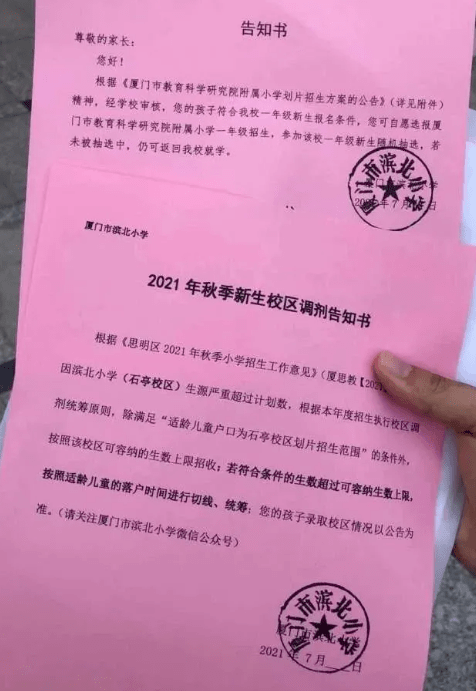 告知书
尊敬的家长：
您好！
根据《厦门市教育科学研究院附属小学划片招生方案的公告》（详见附件）
精神，经学校审核，您的孩子符合我校一年级新生报名条件，您可自愿选报厦
门市教育科学研究院附属小学一年级招生，参加该校一年级新生随机抽选，若
未被抽选中，仍可返回我校就学。
厦门市滨北小学
年7月 日
厦门市滨北小学
2021年秋季新生校区调剂告知书
根据《思明区2021年秋季小学招生工作意见》（厦思教【202
因滨北小学（石亭校区）生源严重超过计划数，根据本年度招生执行校区调
剂统筹原则，除满足“适龄儿童户口为石亭校区划片招生范围”的条件外，
按照该校区可容纳的生数上限招收；若符合条件的生数超过可容纳生数上限，
按照适龄儿童的落户时间进行切线、统筹；您的孩子录取校区情况以公告为
准。（请关注厦门市滨北小学微信公众号）
厦门市滨北小学
厦门市滨北小学
2021年7月__日